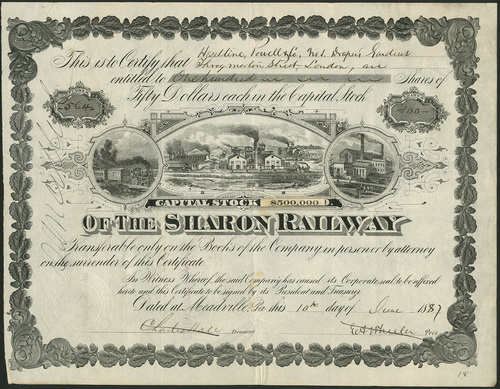 This is to Certify that Heseltine, Powell & Co, No 1 Drapers Gardens
Throgmorton Street, London, are
entitled to One hundred Shares of
Fifty Dollars each in the Capital Stock
564
100
CAPITAL STOCK $500,000
OF THE SHARON RAILWAY
Transferable only on the Books of the Company, in person or by attorney
on the surrender of this Certificate.
In Witness Whereof, the said Company has caused its Corporate seal to be affixed
hereto and this Certificate to be signed by its President and Treasurer.
Dated at Meadville, Pa this 10th day of June 1887
Treasurer
Pres
18